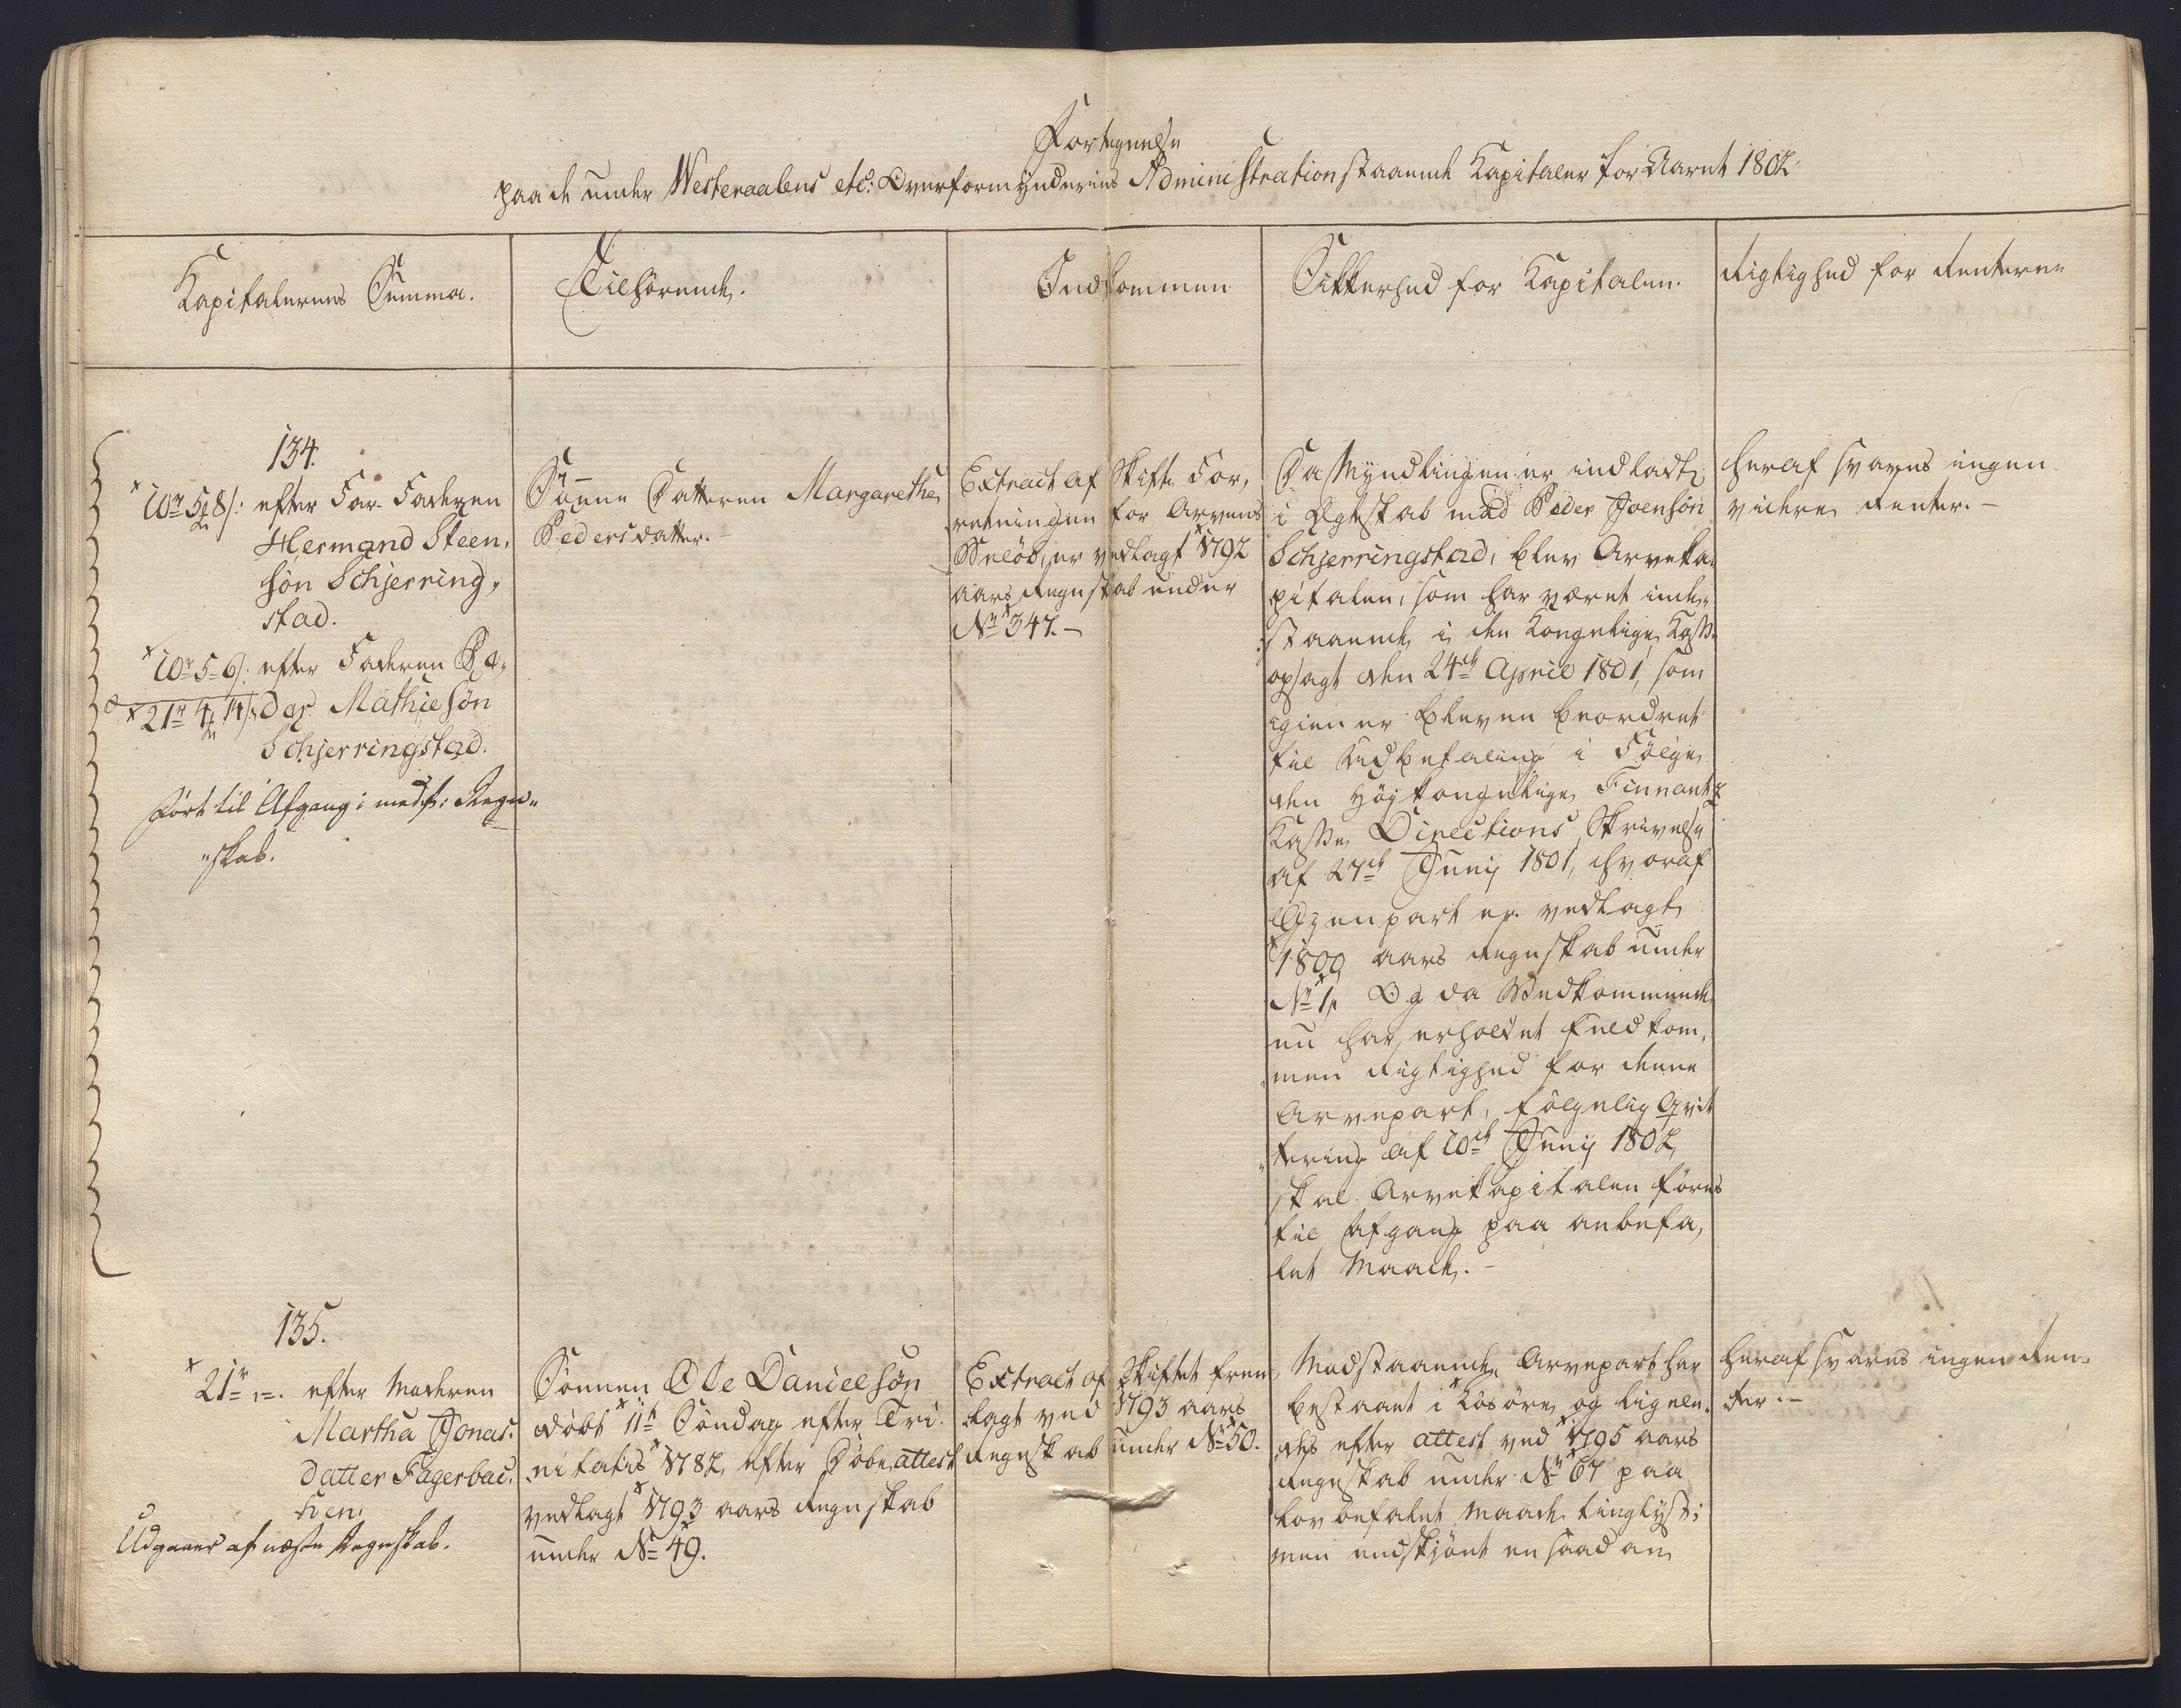 Fortegnelse
paa de under Westeraalens etc: Overformynderies Administration staaende Kapitaler for Aaret 1802.
Kapitalernes Summa.
Tilhørende.
Indkommen
Sikkerhed for Kapitalen.
Rigtighed for Renterne
134.
10r 5 8s: efter Far-Faderen
Hermand Steen,
søn Schjerring,
stad.
10r 5 6s: efter Faderen Pe,
21r 4 14s der Mathiesøn
Schjerringstad.
Ført til Afgang i medf: Regn-
skab.
Sønne Datteren Margarethe
Pedersdatter.
Extract af Skifte For,
retningen for Arvens
Beløb, er vedlagt 1792
aars Regnskab under
No 347.
Da Myndlingen er indladt
i Ægteskab med Peder Joensøn
Schjerringstad, blev Arveka-
pitalen, som har været inde-
staaende i den Kongelige Kasse
opsagt den 24de April 1801, som
igien er bleven beordret
til Udbetaling i Følge
den Høj kongelige Finnantz
Kasse Directions Skrivelse
af 27de Junij 1801, hvoraf
Gjenpart er vedlagt
1800 aars Regnskab under
No 1, Og da Vedkommende
nu har erholdet fuldkom,
men Rigtighed for denne
Arvepart, følgelig Qvit
tering af 10de Junij 1802,
skal Arvekapitalen føres
til Afgang paa anbefa,
let Maade.
heraf svares ingen
videre Renter.
135.
21r efter Moderen
Martha Jonas.
datter Fagerbac.
ken.
Udgaaer af næste Regnskab.
Sønnen Ole Danielsøn
døbt 11te Søndag efter Tri.
nitatis 1782, efter Døbe attest
vedlagt 1793 aars Regnskab
under No 49.
Extract af Skiftet frem
lagt ved 1793 aars
Regnskab under No 50.
Modstaaende Arvepart har
bestaaet i Løsøre, og ligele-
des efter attest ved 1795 aars
Regnskab under No 67 paa
lov befalet Maade tinglyst;
men endskjønt en saadan
heraf svares ingen Ren-
ter.